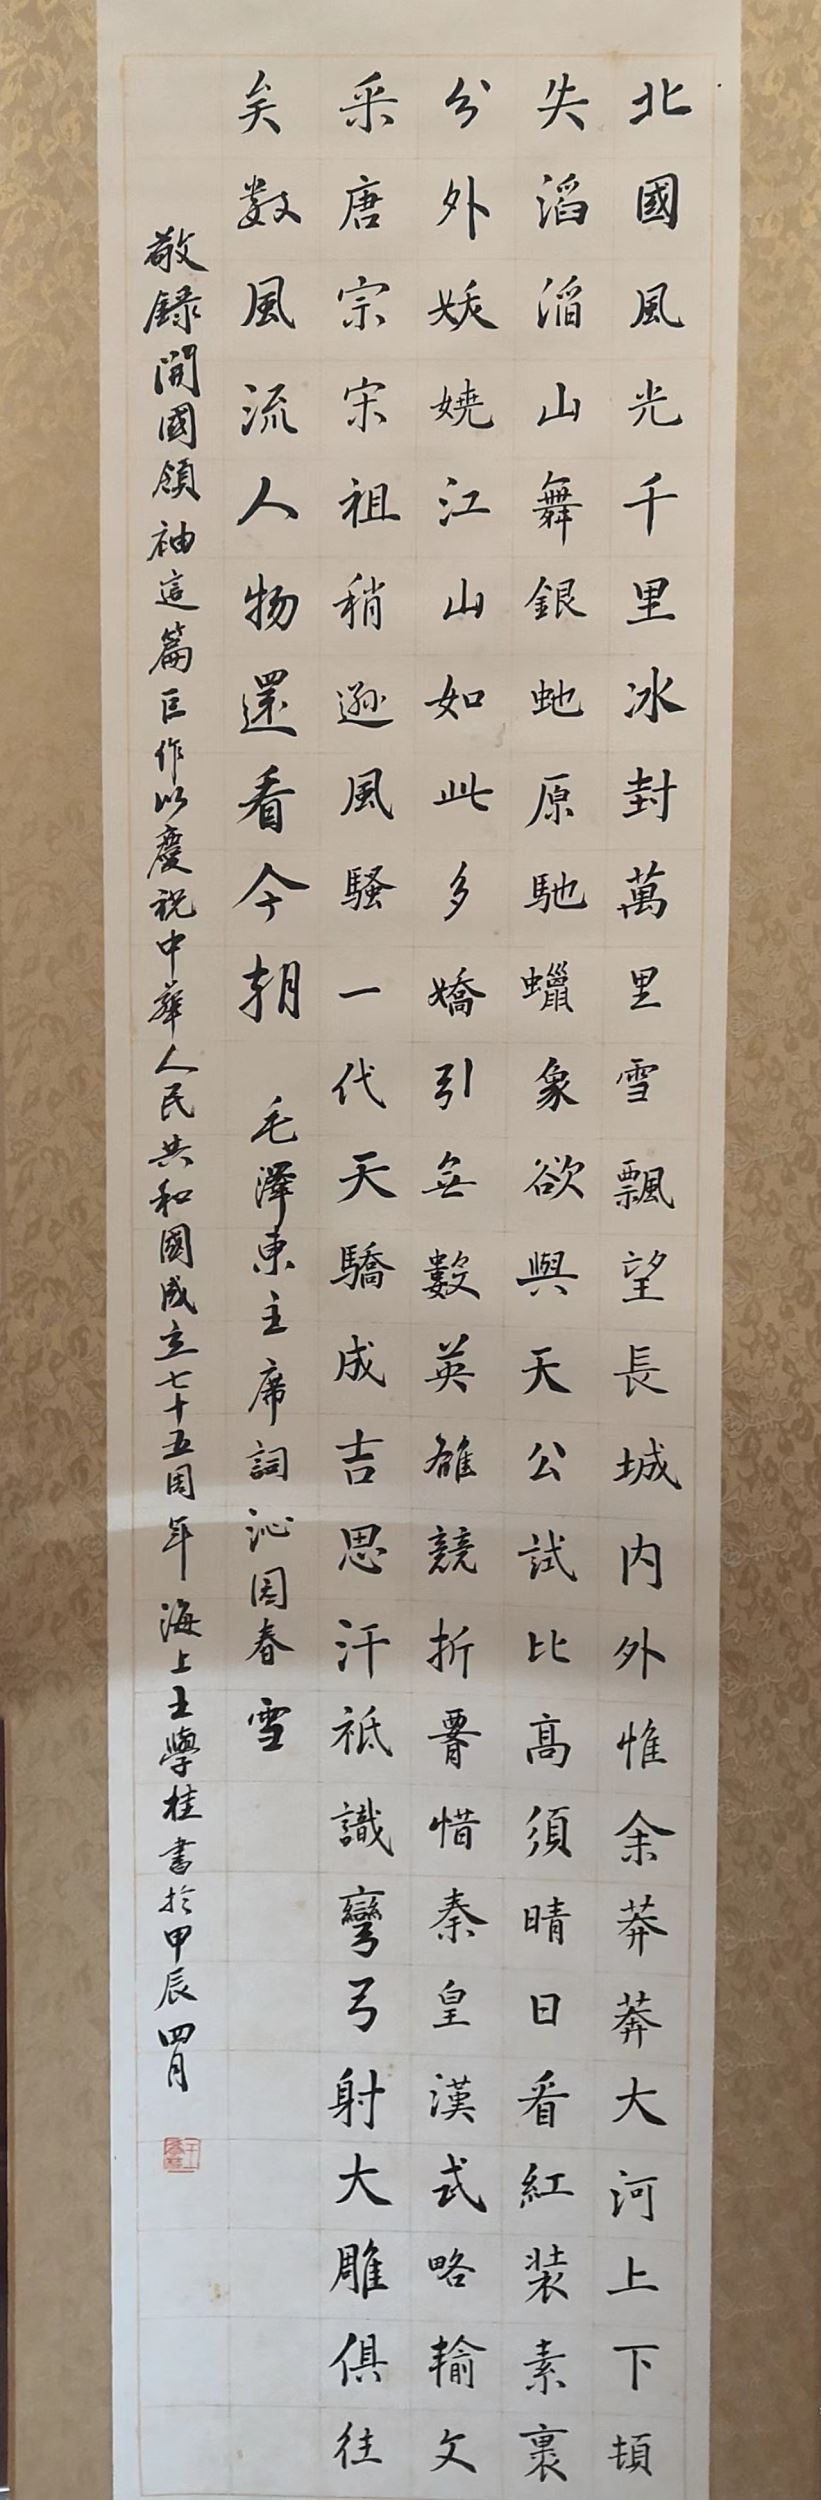 北國風光千里冰封萬里雪飄望長城內外惟余莽莽大河上下頓
失滔滔山舞銀虵原馳蠟象欲與天公試比高須晴日看紅装素裹
分外妖嬈江山如此多嬌引無數英雄競折腰惜秦皇漢武略輸文
采唐宗宋祖稍遜風騷一代天驕成吉思汗祗識彎弓射大雕俱往
矣數風流人物還看今朝 毛澤東主席詞沁园春雪
敬録開國領袖這篇巨作以慶祝中華人民共和國成立七十五周年 海上王學桂書於甲辰四月